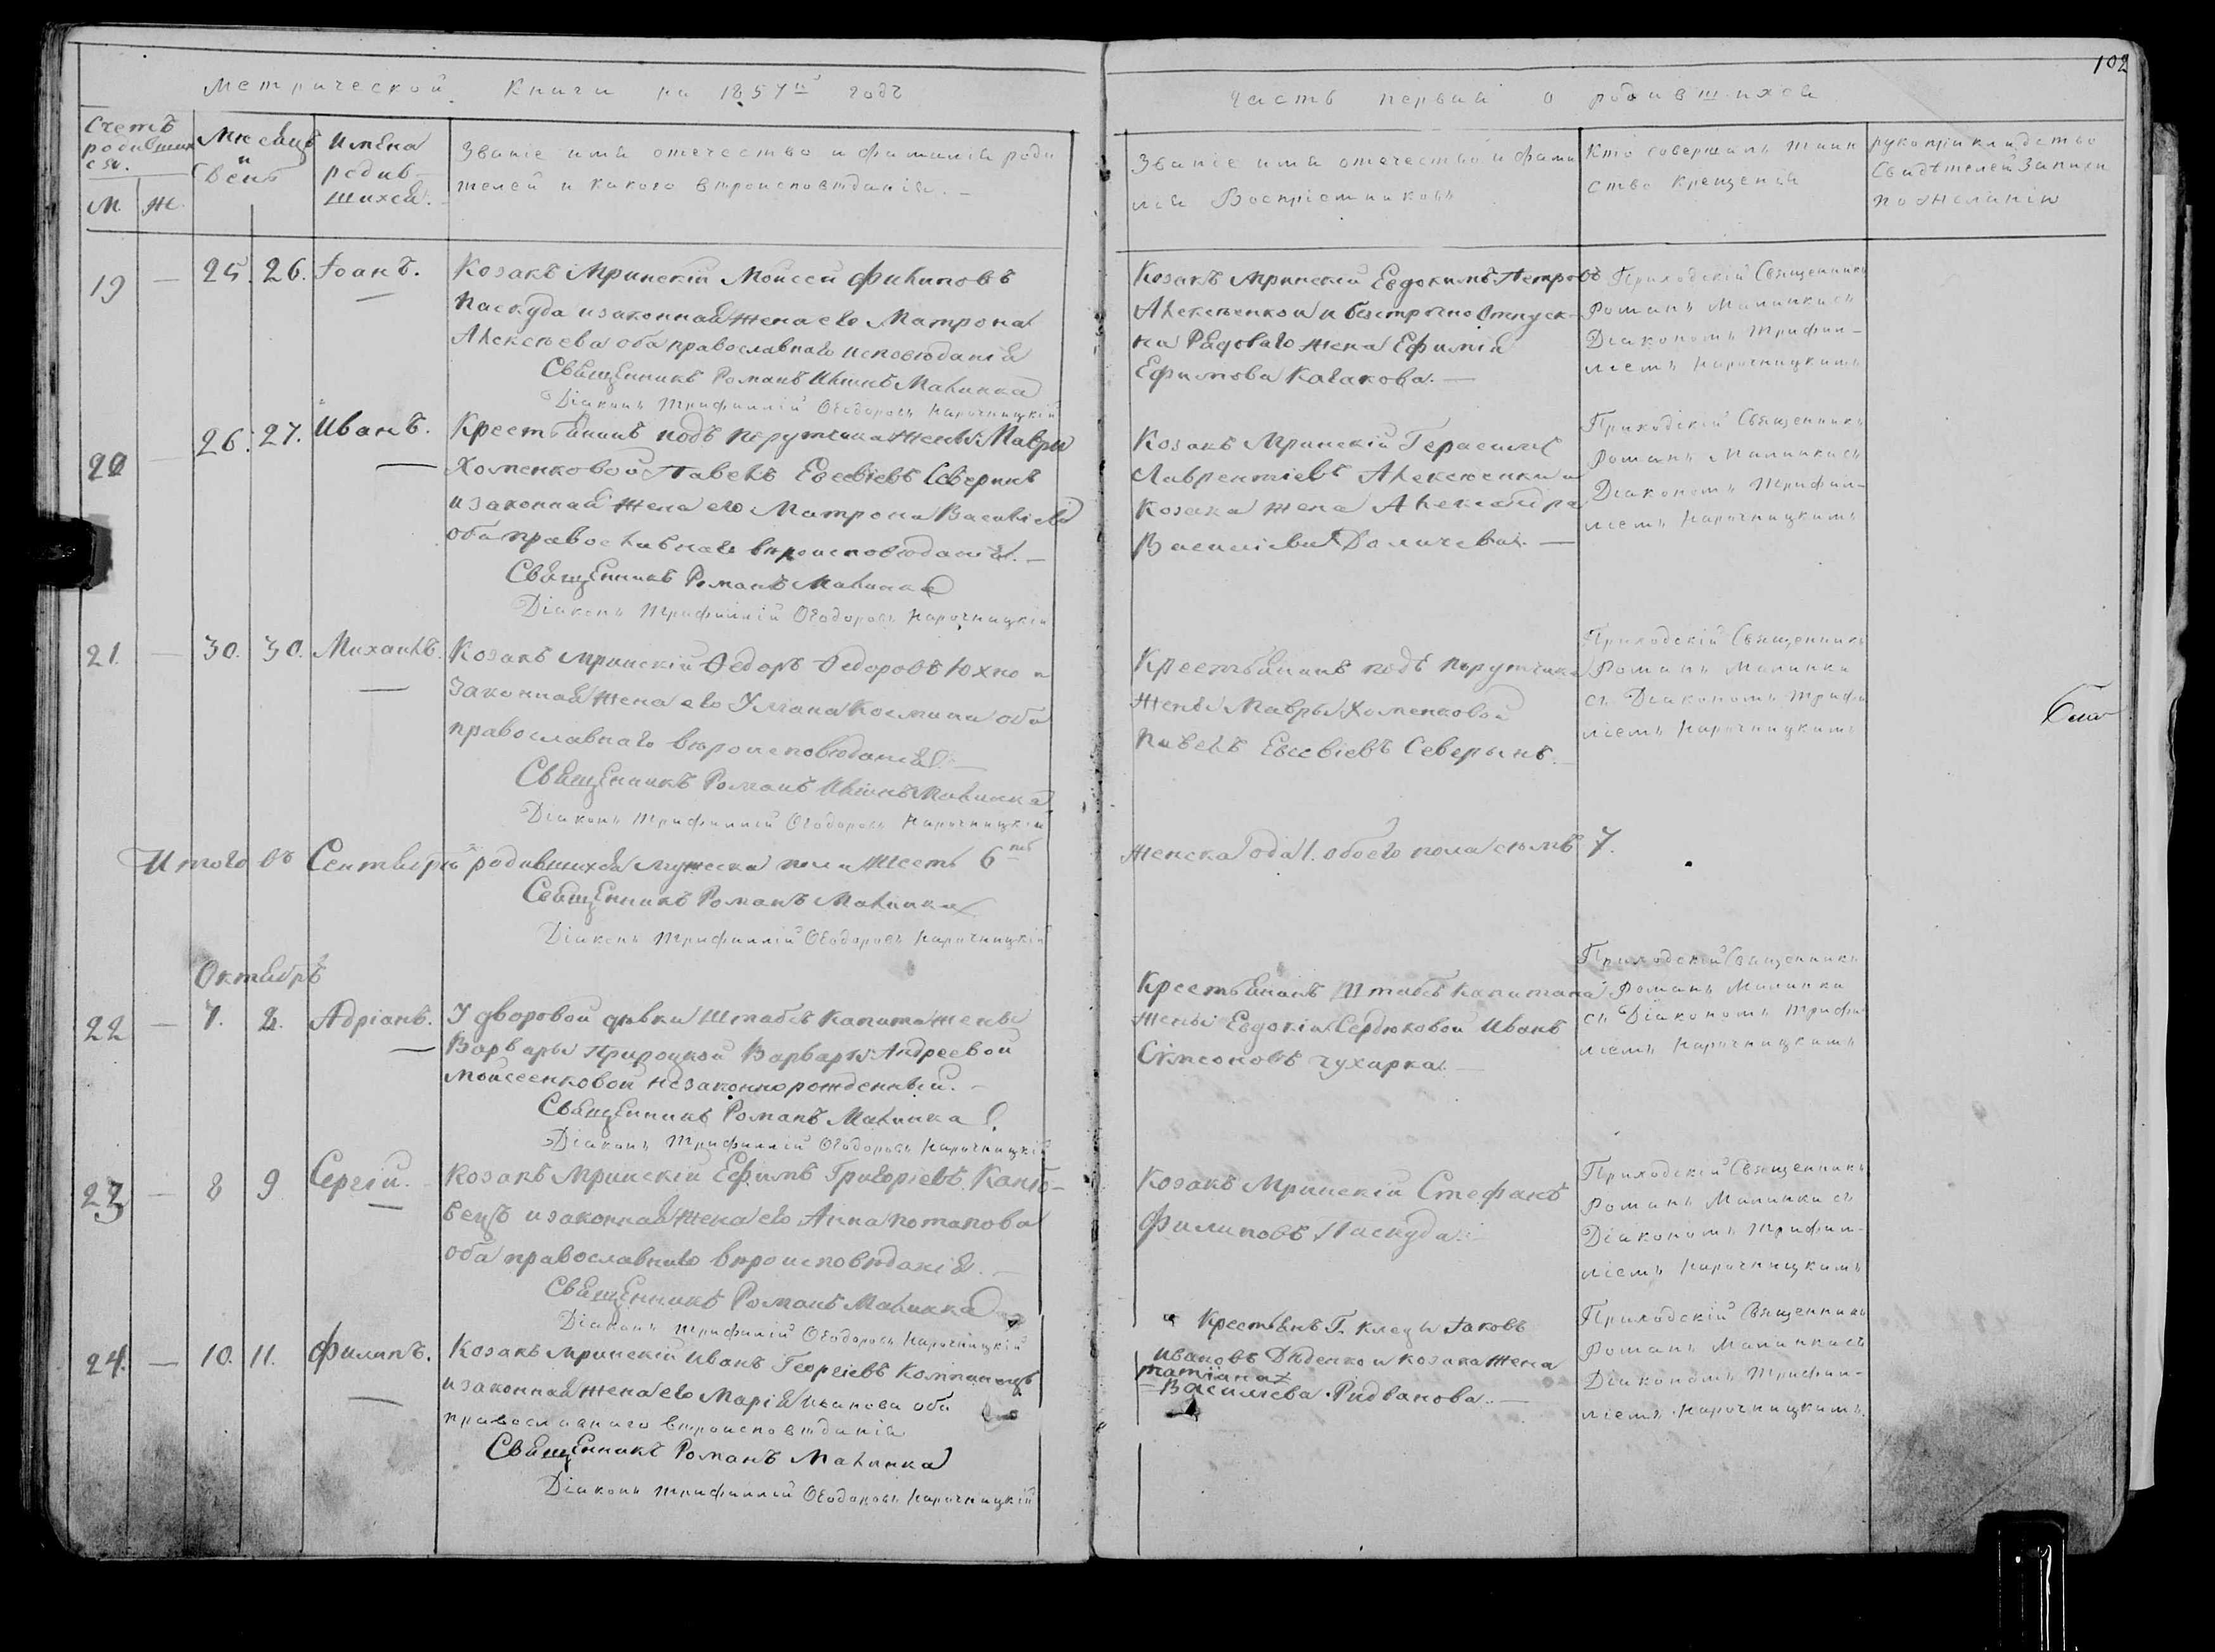 102
Метрической Книги на 1857й годъ
Часть первая о родившихся
Счетъ родившихся.
М. Ж.
Мѣсяцъ и День
Имена родившихся.
Званіе имя отечество и фамилія роди
телей и какого вѣроисповѣданія. –
Званіе имя отечество и фами
лія Воспріемниковъ
Кто совершалъ таин
ство Крещенія
рукоприкладство
Свидѣтелей Записи
по желанію
19 — 25. 26. Іоанъ.
Козакъ Мринскій Моисей Филиповъ
Паскуда и законная жена его Матрона
Алексѣева оба православнаго исповѣданія
Священникъ Романъ Малинка
Діаконъ Трифиллій Ѳеодоровъ Нарочницкій
Козакъ Мринскій Евдокимъ Петровъ
Алексѣенко и безсрочно отпуск-
на Рядоваго жена Ефимія
Ефимова Казакова. —
Приходскій Священникъ
Романъ Малинка съ
Діакономъ Трифил-
ліемъ Нарочницкимъ
20 — 26. 27. Иванъ.
Крестьянинъ подъ порутчика жены Мавры
Хоменковой Павелъ Евсевіевъ Северинъ
и законная жена его Матрона Василіева
оба православнаго вѣроисповѣданія. —
Священникъ Романъ Малинка
Діаконъ Трифиллій Ѳеодоровъ Нарочницкій
Козакъ Мринскій Герасимъ
Лаврентіевъ Алексѣенко и
Козака жена Александра
Василіева
Приходскій Священникъ
Романъ Малинка съ
Діакономъ Трифил-
ліемъ Нарочницкимъ
21. — 30. 30. Михаилъ.
Козакъ Мринскій Ѳедоръ Ѳедоровъ Юхно и
законная жена его Уліана Космина оба
православнаго вѣроисповѣданія. —
Священникъ Романъ Малинка
Діаконъ Трифиллій Ѳеодоровъ Нарочницкій
Крестьянинъ подъ порутчика
жены Мавры Хоменковой
Павелъ Евсевіевъ Северынъ.
Приходскій Священникъ
Романъ Малинка
съ Діакономъ Трифи
ліемъ Нарочницкимъ
Итого въ Сентябрѣ родившихся мужеска пола шесть 6
женска одна 1. обоего пола семь 7.
Священникъ Романъ Малинка
Діаконъ Трифиллій Ѳеодоровъ Нарочницкій
Октябрь
22 — 1. 2. Адріанъ.
У дворовой дѣвки Штабсъ Капита жены
Варвары Варвары Андреевой
Моисеенковой незаконнорожденный. –
Священникъ Романъ Малинка
Діаконъ Трифиллій Ѳеодоровъ Нарочницкій
Крестьянинъ Штабсъ Капитана
жены Евдокіи Сердюковой Иванъ
Симеоновъ Чухарка. —
Приходскій Священникъ
Романъ Малинка
съ Діакономъ Трифи
ліемъ Нарочницкимъ
23 — 8 9 Сергій.
Козакъ Мринскій Ефимъ Григоріевъ
и законная жена его Анна Потапова
оба православнаго вѣроисповѣданія. —
Священникъ Романъ Малинка
Діаконъ Трифилій Ѳеодоровъ Нарочницкій
Козакъ Мринскій Стефанъ
Филиповъ Паскуда. —
Приходскій Священникъ
Романъ Малинка съ
Діакономъ Трифил-
ліемъ Нарочницкимъ
24. — 10. 11. Филипъ.
Козакъ Мринскій Иванъ Георгіевъ Компанецъ
и законная жена его Марія Иванова оба
православнаго вѣроисповѣданія
Священникъ Романъ Малинка
Діаконъ Трифиллій Ѳеодоровъ Нарочницкій
Іаковъ
Ивановъ Дѣденко и козака жена
Татіана
Василіева Ридванова. —
Приходскій Священникъ
Романъ Малинка съ
Діакономъ Трифил-
ліемъ Нарочницкимъ.